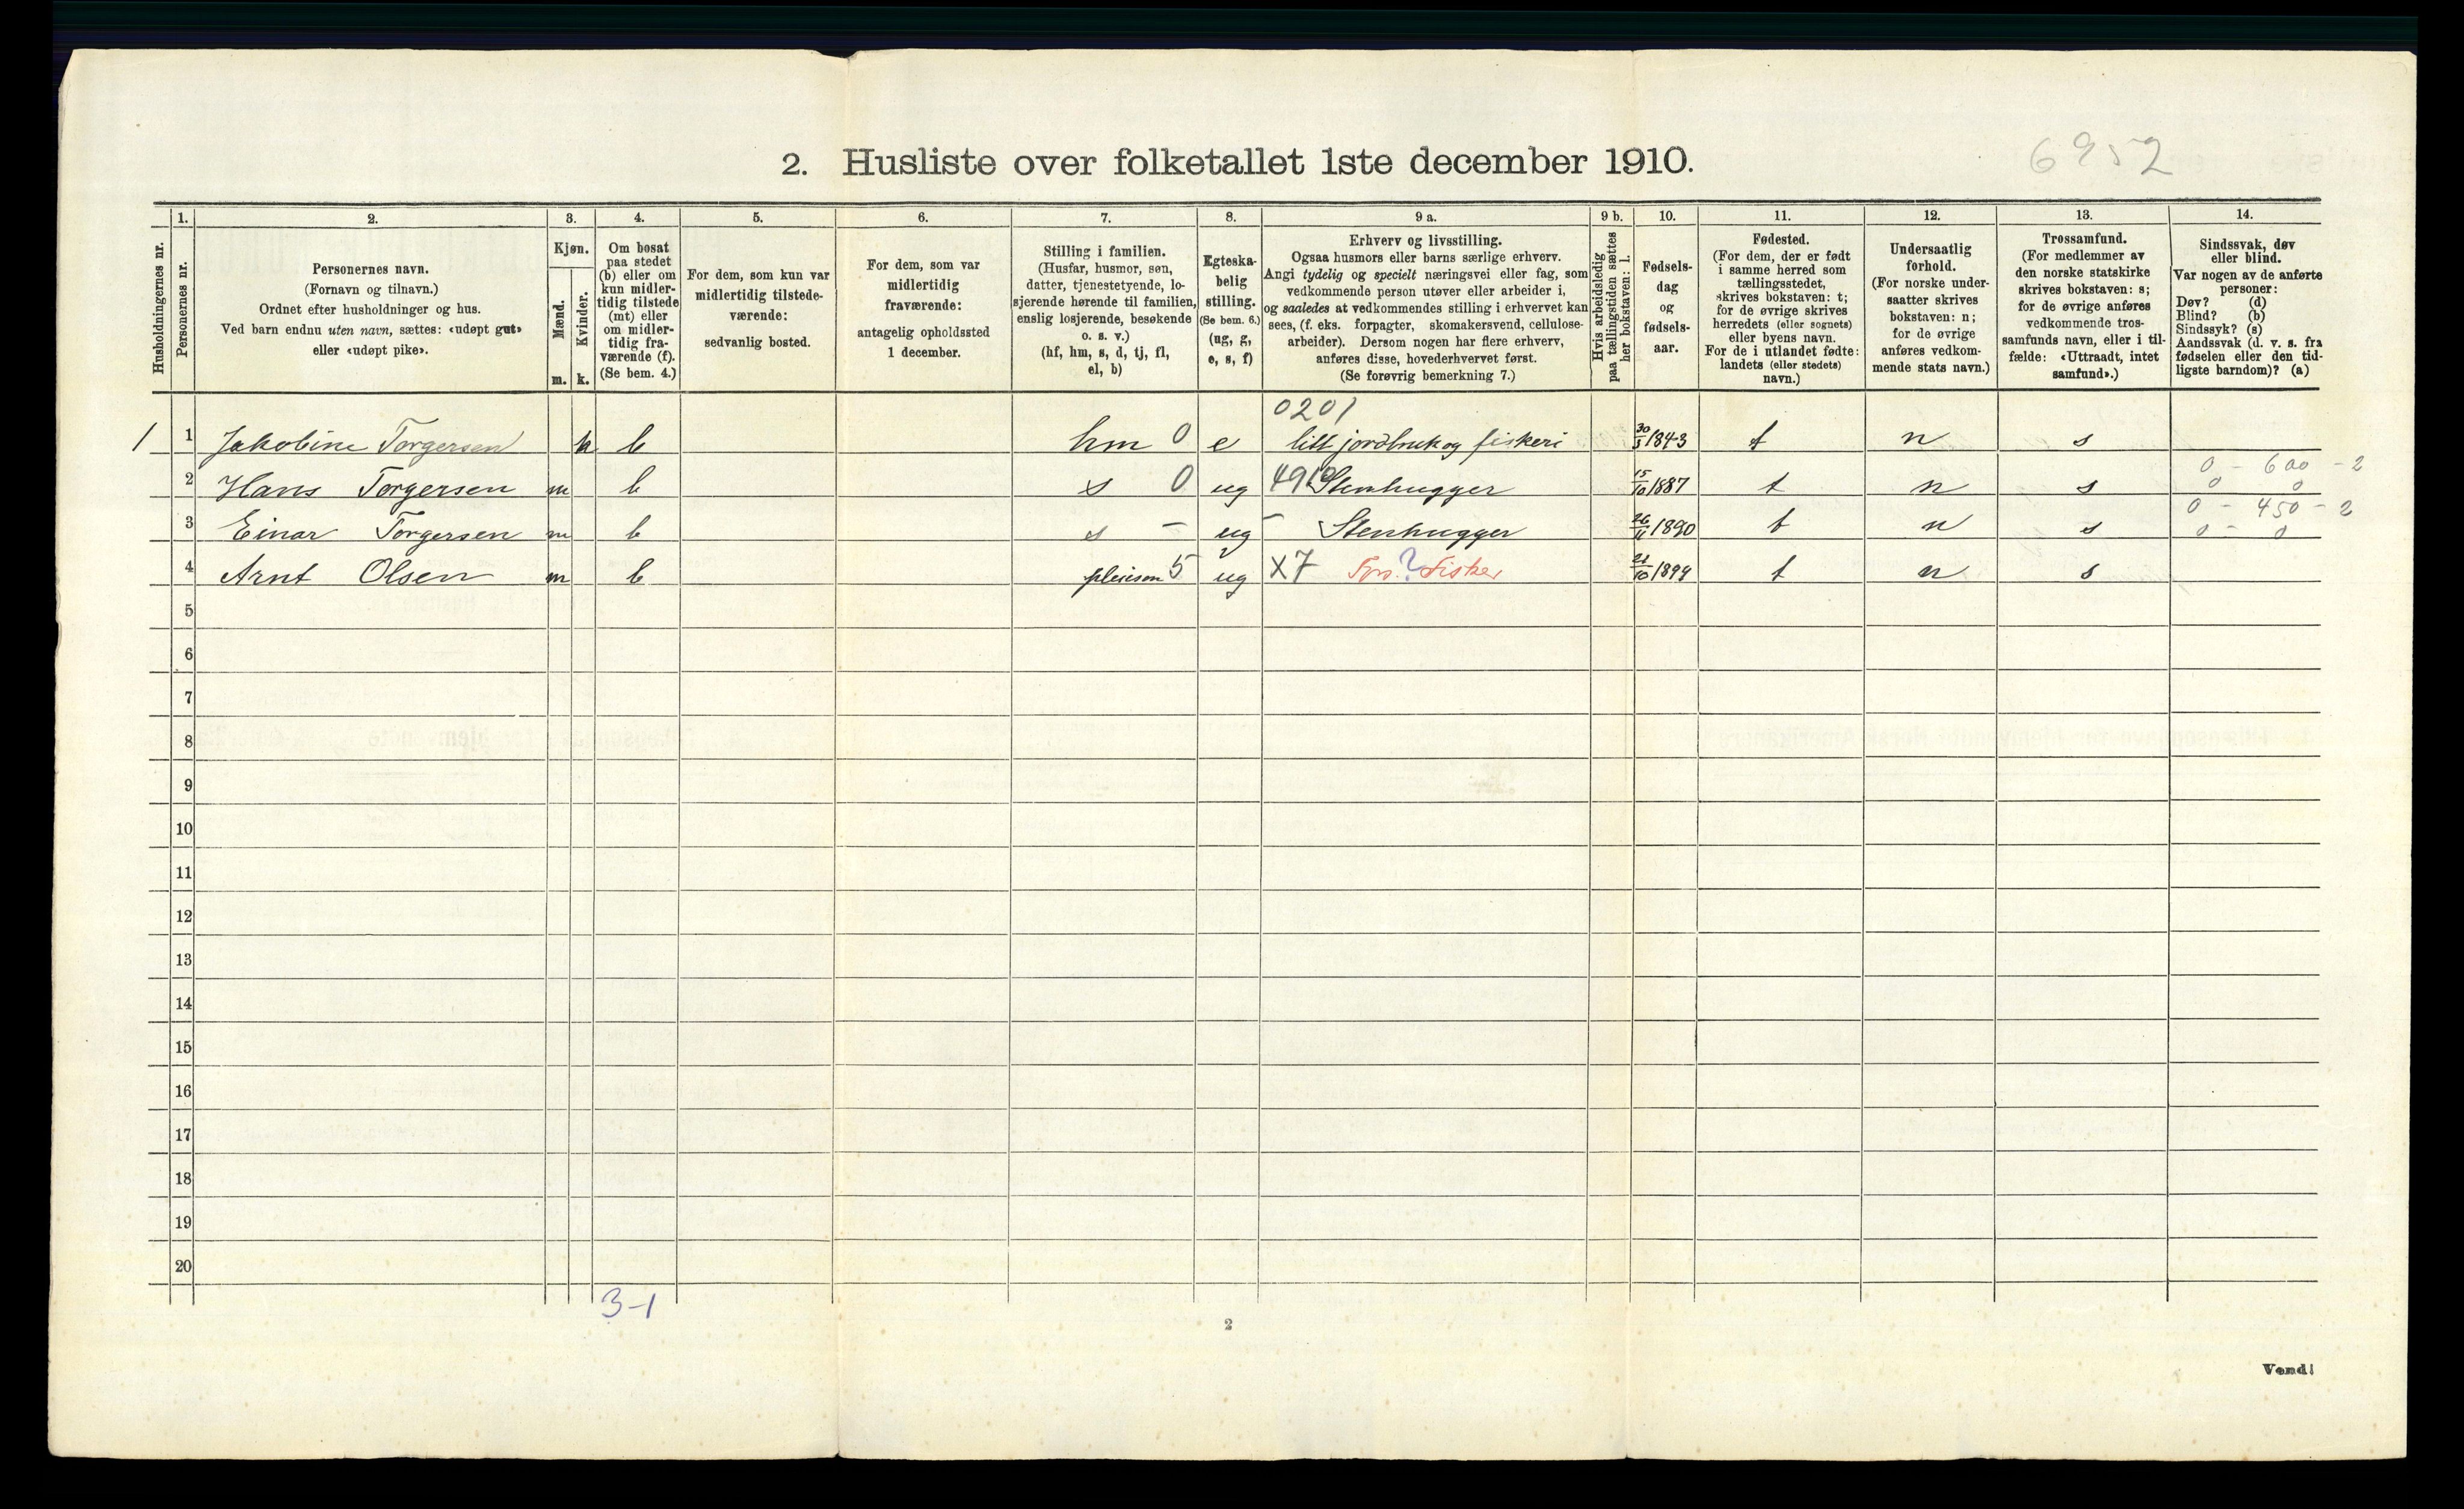 6952
2. Husliste over folketallet 1ste december 1910.
Husholdningernes nr.
1.
Personernes nr.
2.
Personernes navn.
(Fornavn og tilnavn.)
Ordnet efter husholdninger og hus.
Ved barn endnu uten navn, sættes: «udøpt gut»
eller «udøpt pike».
3.
Kjøn.
Mænd.
m.
Kvinder.
k.
4.
Om bosat
paa stedet
(b) eller om
kun midler-
tidig tilstede
(mt) eller
om midler-
tidig fra-
værende (f).
(Se bem. 4.)
5.
For dem, som kun var
midlertidig tilstede-
værende:
sedvanlig bosted.
6.
For dem, som var
midlertidig
fraværende:
antagelig opholdssted
1 december.
7.
Stilling i familien.
(Husfar, husmor, søn,
datter, tjenestetyende, lo-
sjerende hørende til familien,
enslig losjerende, besøkende
o. s. v.)
(hf, hm, s, d, tj, fl,
el, b)
8.
Egteska-
belig
stilling.
(Se bem. 6.)
(ug, g,
e, s, f)
9 a.
Erhverv og livsstilling.
Ogsaa husmors eller barns særlige erhverv.
Angi tydelig og specielt næringsvei eller fag, som
vedkommende person utøver eller arbeider i,
og saaledes at vedkommendes stilling i erhvervet kan
sees, (f. eks. forpagter, skomakersvend, cellulose-
arbeider). Dersom nogen har flere erhverv,
anføres disse, hovederhvervet først.
(Se forøvrig bemerkning 7.)
9 b.
Hvis arbeidsledig
paa tællingstiden sættes
her bokstaven: l.
10.
Fødsels-
dag
og
fødsels-
aar.
11.
Fødested.
(For dem, der er født
i samme herred som
tællingsstedet,
skrives bokstaven: t;
for de øvrige skrives
herredets (eller sognets)
eller byens navn.
For de i utlandet fødte:
landets (eller stedets)
navn.)
12.
Undersaatlig
forhold.
(For norske under-
saatter skrives
bokstaven: n;
for de øvrige
anføres vedkom-
mende stats navn.)
13.
Trossamfund.
(For medlemmer av
den norske statskirke
skrives bokstaven: s;
for de øvrige anføres
vedkommende tros-
samfunds navn, eller i til-
fælde: «Uttraadt, intet
samfund».)
14.
Sindssvak, døv
eller blind.
Var nogen av de anførte
personer:
Døv? (d)
Blind? (b)
Sindssyk? (s)
Aandssvak (d. v. s. fra
fødselen eller den tid-
ligste barndom)? (a)
0201
1 1 Jakobine Torgersen k b hm 0 e litt jordbruk og fiskeri 30/5 1843 t n s
0 - 600 - 2
2 Hans Torgersen m b s 0 ug Stenhugger 15/10 1887 t n s 0 0
0 - 450 - 2
3 Einar Torgersen m b s - ug - Stenhugger 26/11 1890 t n s 0 - 0
4 Arnt Olsen m b pleiesøn 5 ug X7 Fors.? Fisker 21/10 1894 t n s
5
6
7
8
9
10
11
12
13
14
15
16
17
18
19
20
3-1
2
Vend!